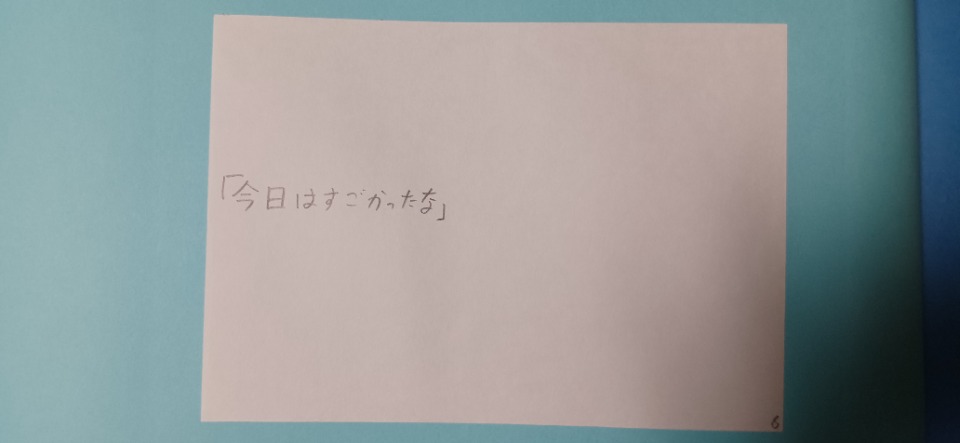 「今日はすごかったな」
6